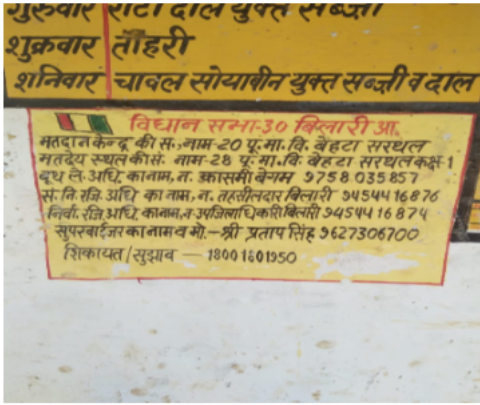 गुरुवार रोटी दाल युक्त सब्जी
शुक्रवार तौहरी
शनिवार चावल सोयाबीन युक्त सब्जी व दाल
विधान सभा-30 बिलारी आ.
मतदान केन्द्र की सं., नाम-20 पू. मा. वि. बैहटा सरथल
मतदेय स्थल की सं. नाम-28 पू. मा. वि. बेहटा सरथल कक्ष-1
बूथ ले. अधि. का नाम, न. कासमी बेगम 9758035857
स. नि. रजि. अधि का नाम, न. तहसीलदार बिलारी 9454416876
निर्वा. रजि. अधि. का नाम, न उपजिलाधिकारी बिलारी 9454416874
सुपरवाईजर का नाम व मो.-श्री प्रताप सिंह 9627306700
शिकायत/सुझाव - 18001801950